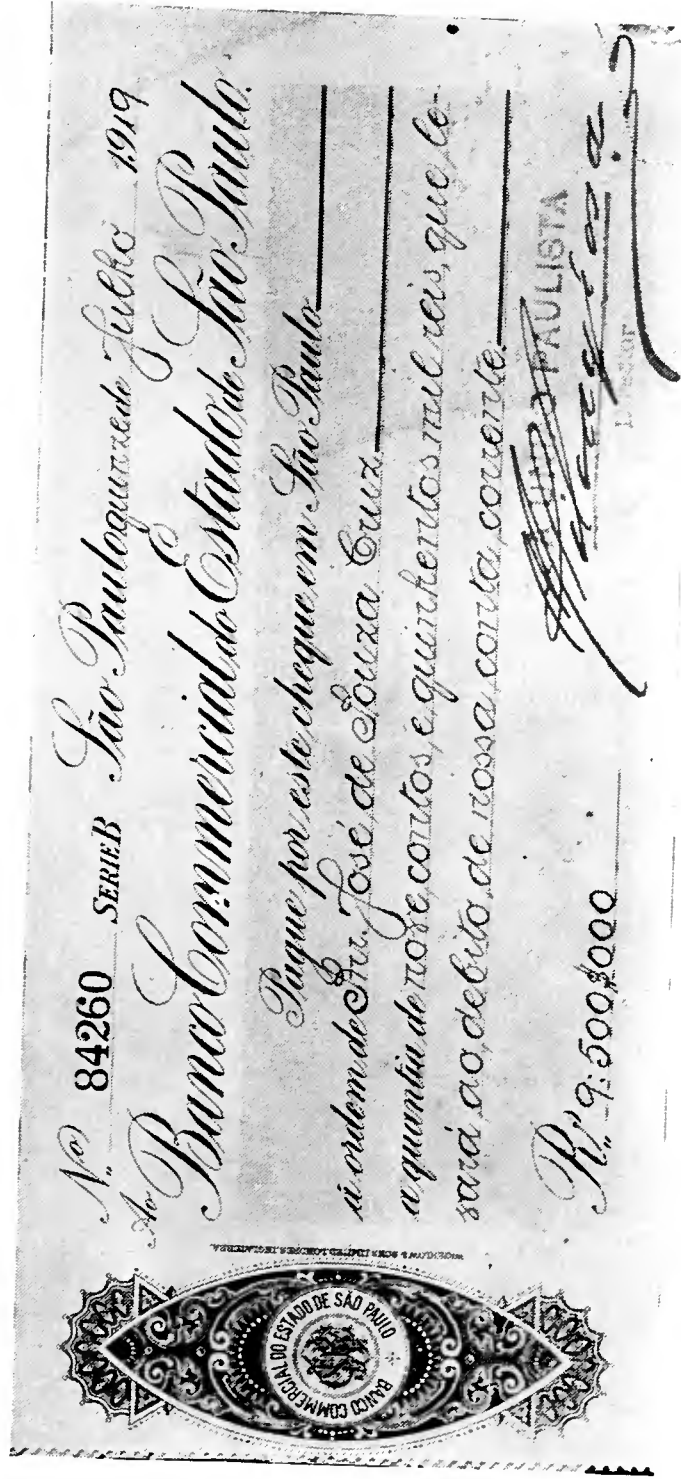 Nº 84260 SERIE B São Paulo quinze de Julho 1919
Ao Banco Commercial do Estado de São Paulo.
Pague por este cheque em São Paulo
á ordem do Snr. José de Souza Cruz
a quantia de nove contos e quinhentos mil reis, que le-
vará ao debito de nossa conta corrente.
PAULISTA
Rs 9:500$000
WATERLOW & SONS LIMITED, LONDRES, INGLATERRA.
BANCO COMMERCIAL DO ESTADO DE SÃO PAULO